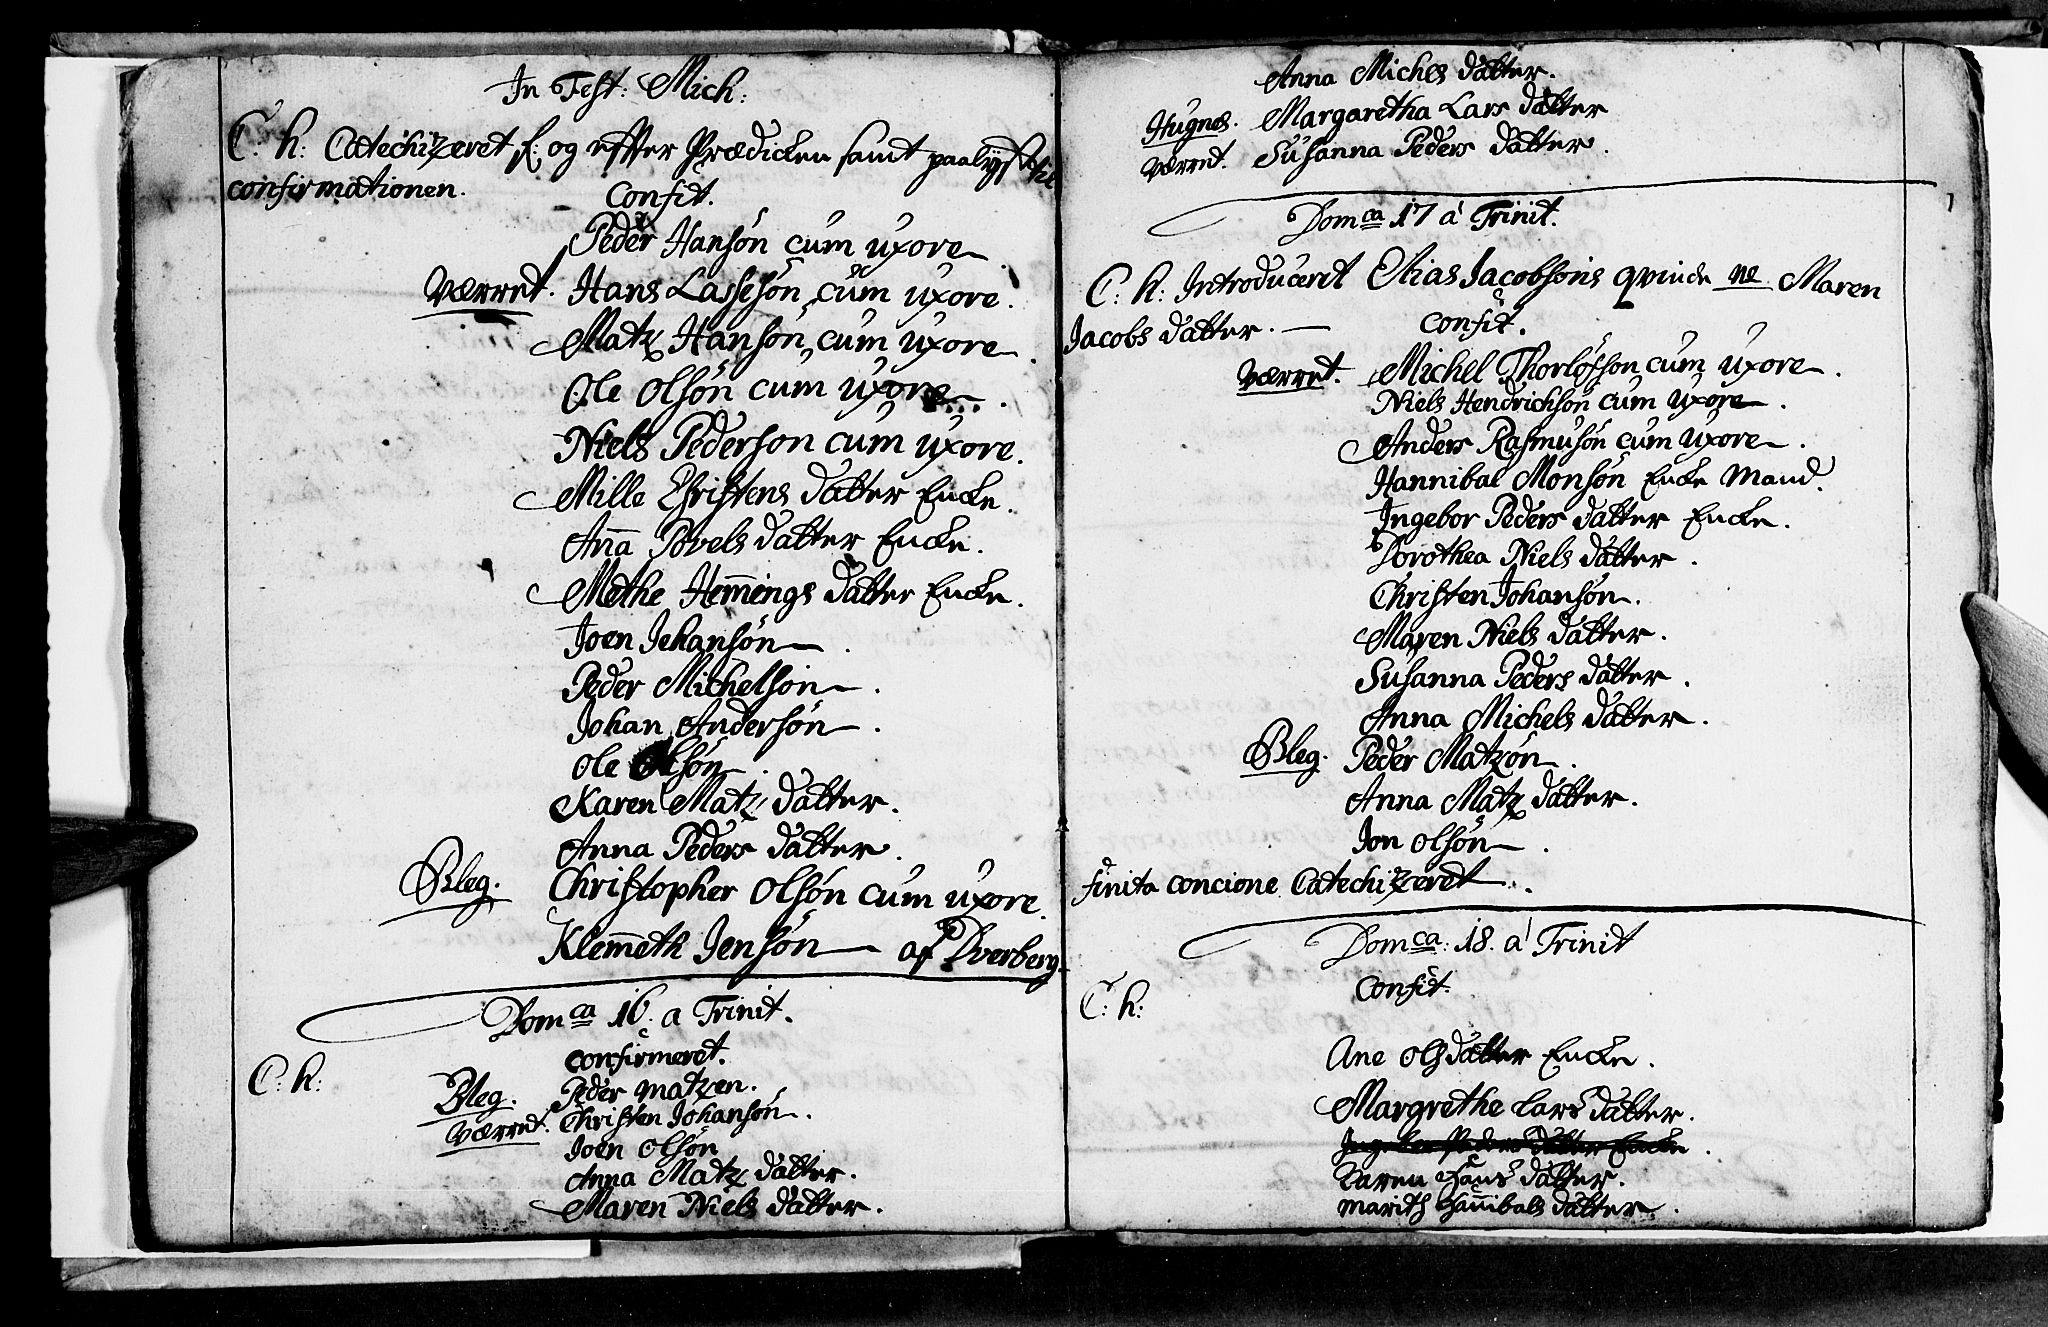 In Fest: Mich:
C. h: Catechizeret f: og effter Prædicken samt paalyst
confirmationen.
Confit.
Peder Hansøn cum uxore
Værret. Hans Lassesøn cum uxore.
Matz Hansøn cum uxore.
Ole Olsøn cum uxore.
Niels Pedersøn cum uxore.
Mille Christens datter Encke.
Aña Povels datter Encke.
Methe Hem̄ings datter Encke.
Joen Jehansøn.
Peder Michelsøn.
Johan Andersøn.
Ole Olsøn.
Karen Matz datter.
Anna Peders datter.
Bleg. Christopher Olsøn cum uxore.
Klem̄eth Jensøn af Dverberg.
Domca 16. a Trinit.
confirmeret.
C: h:
Bleg. Peder Matzen.
Værret. Christen Johansøn.
Joen Olsøn
Anna Matz datter.
Maren Niels datter.
Anna Michels datter.
Hugnes. Margaretha Lars datter
Værret. Susanna Peders datter.
Domca 17 a Trinit.
C: h: Introduceret Elias Jacobsøns qvinde ne Maren
Jacobs datter.
Confit.
Værret. Michel Thorløfsøn cum uxore.
Niels Hendrichsøn cum uxore.
Anders Rasmusøn cum uxore.
Hannibal Monsøn Encke Mand.
Ingebor Peders datter Encke.
Dorothea Niels datter.
Christen Johansøn.
Maren Niels datter.
Susanna Peders datter.
Anna Michels datter.
Bleg. Peder Matzøn.
Anna Matz datter.
Jon Olsøn.
finita concione Catechizeret.
Domca: 18. a Trinit
Confit.
C: h:
Ane Olsdatter Encke.
Margrethe Lars datter.
Ingebor Peders datter Encke.
Karen Hans datter.
Marith Han̄ibals datter.